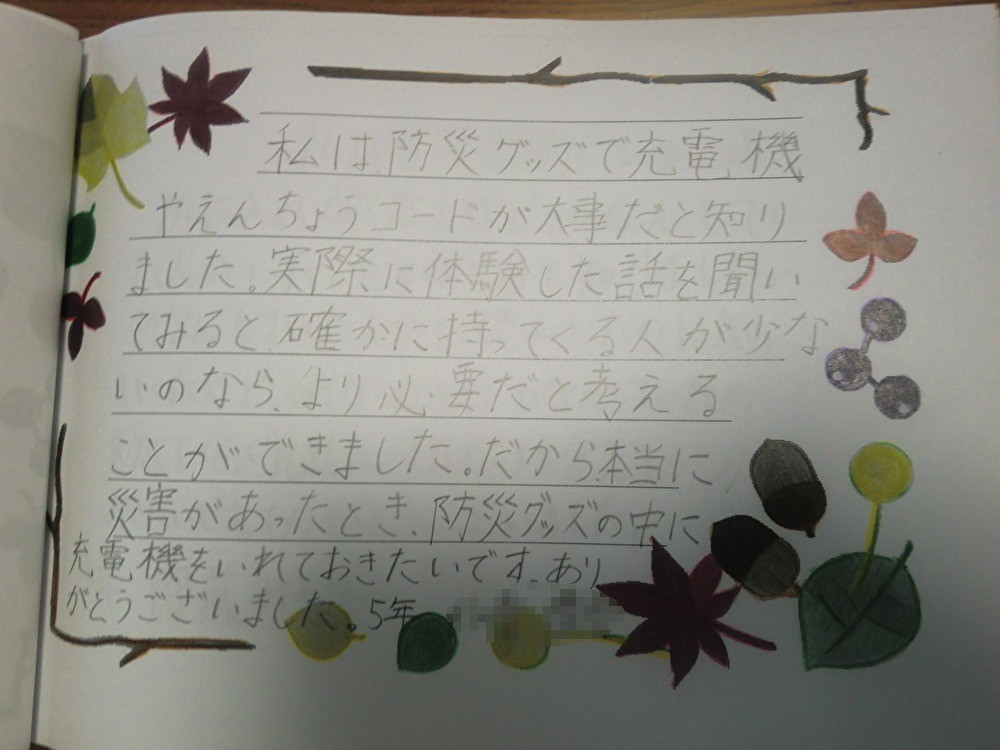 私は、防災グッズで充電機
やえんちょうコードが大事だと知り
ました。実際に体験した話を聞い
てみると、確かに持ってくる人が少な
いのなら、より必要だと考える
ことができました。だから、本当に
災害があったとき、防災グッズの中に
充電機をいれておきたいです。あり
がとうございました。5年